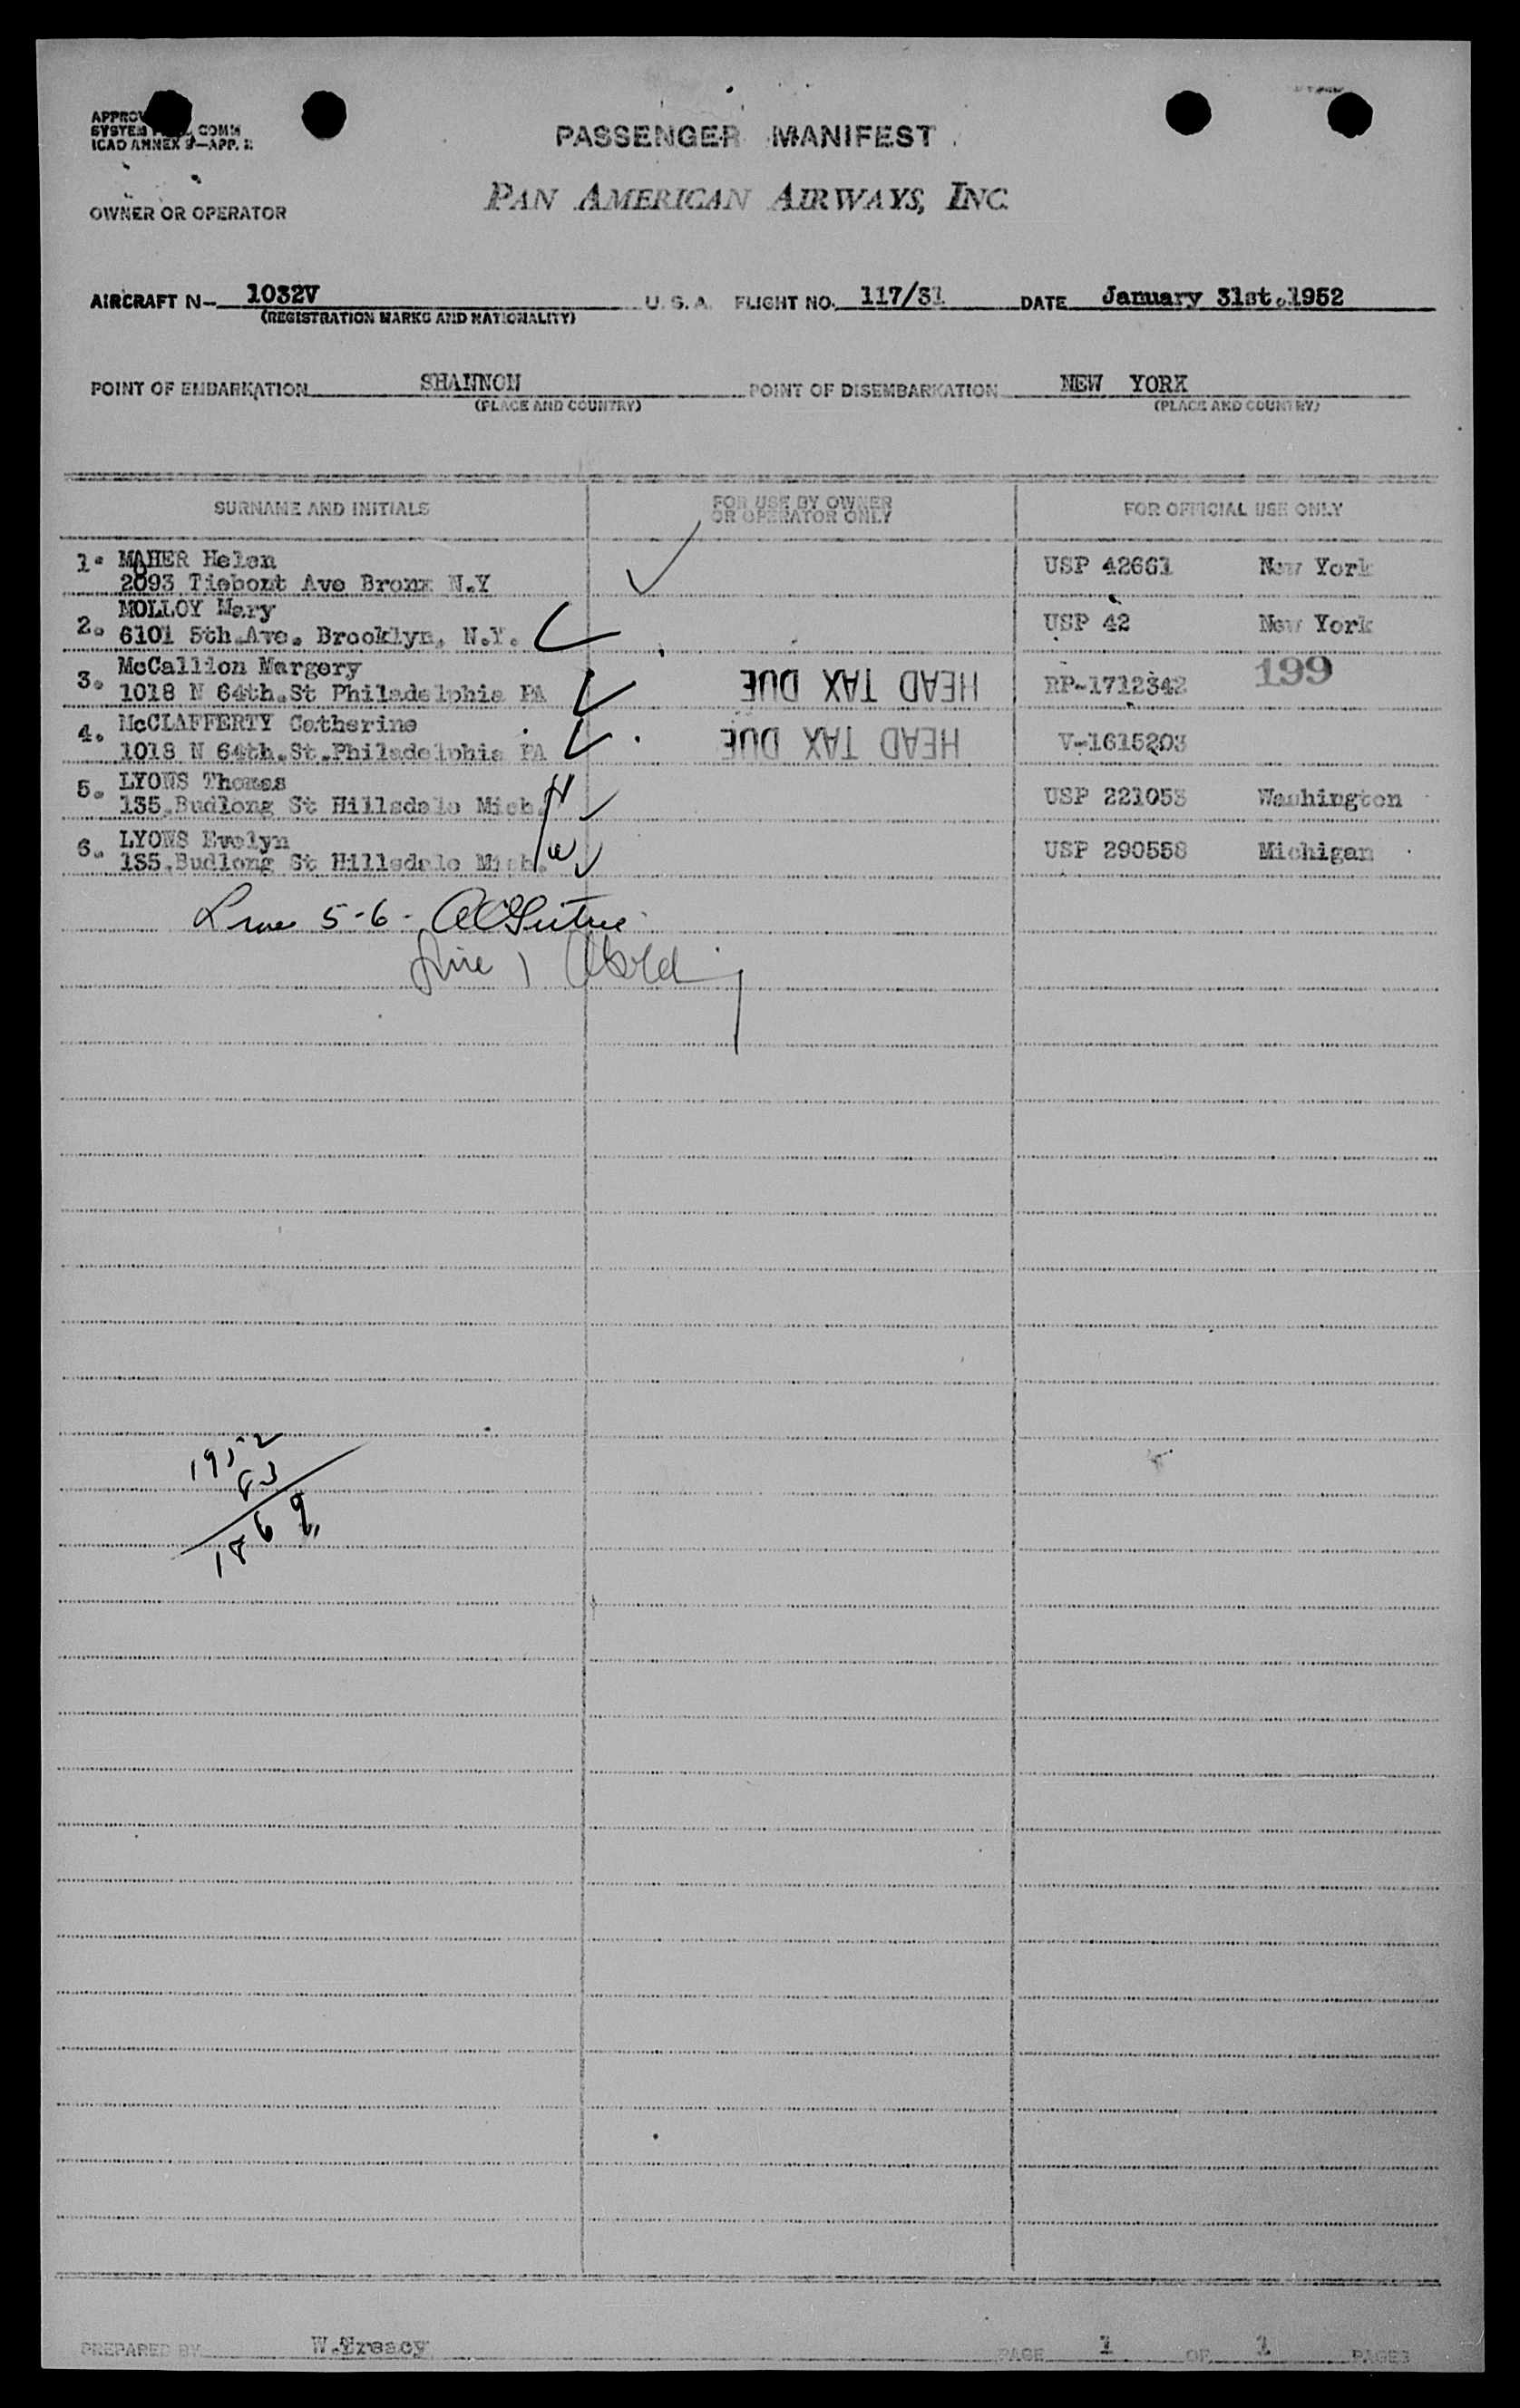 PASSENGER MANIFEST
ICAO ANNEX 9—APP. 2
OWNER OR OPERATOR
PAN AMERICAN AIRWAYS, INC.
AIRCRAFT N- 1032V U. S. A. FLIGHT NO. 117/31 DATE January 31st.1952
(REGISTRATION MARKS AND NATIONALITY)
POINT OF EMBARKATION SHANNON POINT OF DISEMBARKATION NEW YORK
(PLACE AND COUNTRY) (PLACE AND COUNTRY)
SURNAME AND INITIALS FOR USE BY OWNER OR OPERATOR ONLY FOR OFFICIAL USE ONLY
1. MAHER Helen USP 42661 New York
2093 Tiebout Ave Bronx N.Y
2. MOLLOY Mary USP 42 New York
6101 5th.Ave. Brooklyn, N.Y.
199
3. McCallion Margery HEAD TAX DUE RP-1712342
1018 N 64th.St Philadelphia PA
4. McCLAFFERTY Catherine HEAD TAX DUE V-1615203
1018 N 64th.St.Philadelphia PA
5. LYONS Thomas H USP 221053 Washington
135.Budlong St Hillsdale Mich.
6. LYONS Evelyn W USP 290558 Michigan
135.Budlong St Hillsdale Mich.
Line 5-6-
Line 1
1952
83
1869
PREPARED BY W.Treacy PAGE 1 OF 1 PAGES